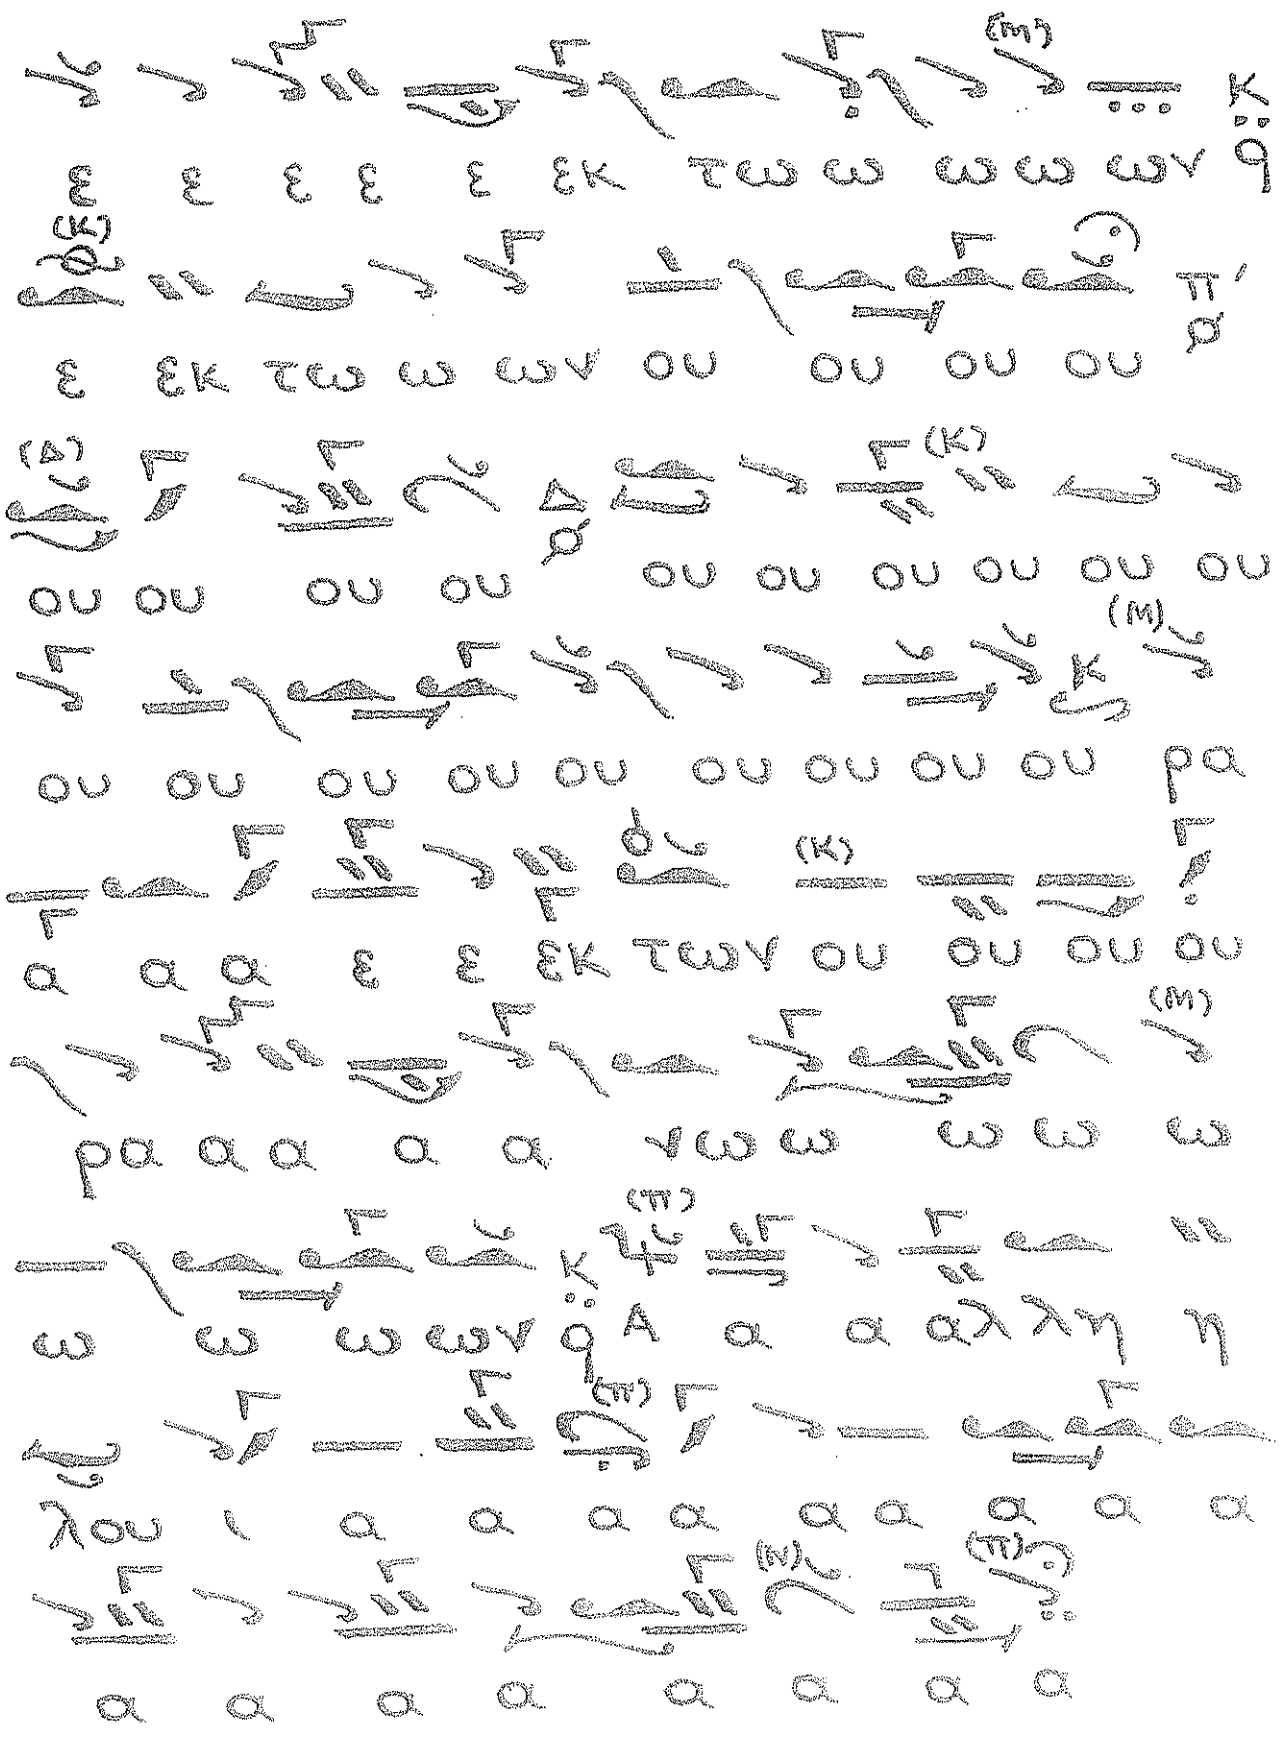 (М)
Κ
ε ε ε ε ε εκ τω ω ω ω ων q
(Κ)
π'
ε εκ τω ω ων ου ου ου ου
(Δ) (Κ)
Δ
ου ου ου ου ου ου ου ου ου ου
(Μ)
Κ
ου ου ου ου ου ου ου ου ου ρα
(Κ)
α α α ε ε εκ των ου ου ου ου
(Μ)
ρα α α α α νω ω ω ω ω
(π)
Κ
ω ω ω ων q Α α α αλ λη η
(π)
λου ι α α α α α α α α α
(Ν) (π)
α α α α α α α α